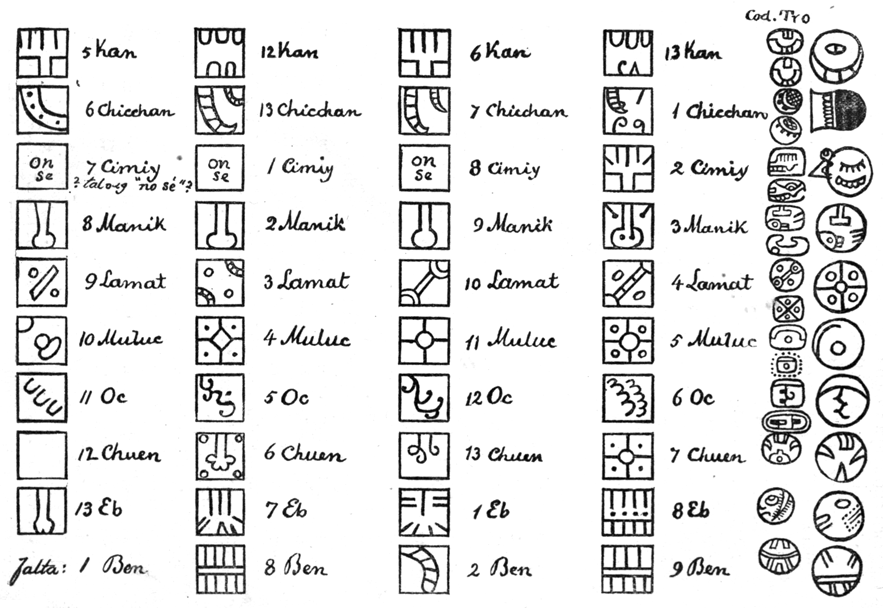 Cod. Tro
5 Kan 12 Kan 6 Kan 13 Kan
6 Chicchan 13 Chicchan 7 Chicchan 1 Chicchan
on se 7 Cimiy on se 1 Cimiy on se 8 Cimiy 2 Cimiy
"no sé"?
8 Manik 2 Manik 9 Manik 3 Manik
9 Lamat 3 Lamat 10 Lamat 4 Lamat
10 Muluc 4 Muluc 11 Muluc 5 Muluc
11 Oc 5 Oc 12 Oc 6 Oc
12 Chuen 6 Chuen 13 Chuen 7 Chuen
13 Eb 7 Eb 1 Eb 8 Eb
Falta: 1 Ben 8 Ben 2 Ben 9 Ben